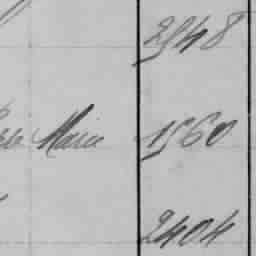 2548
Marie 1560
2404